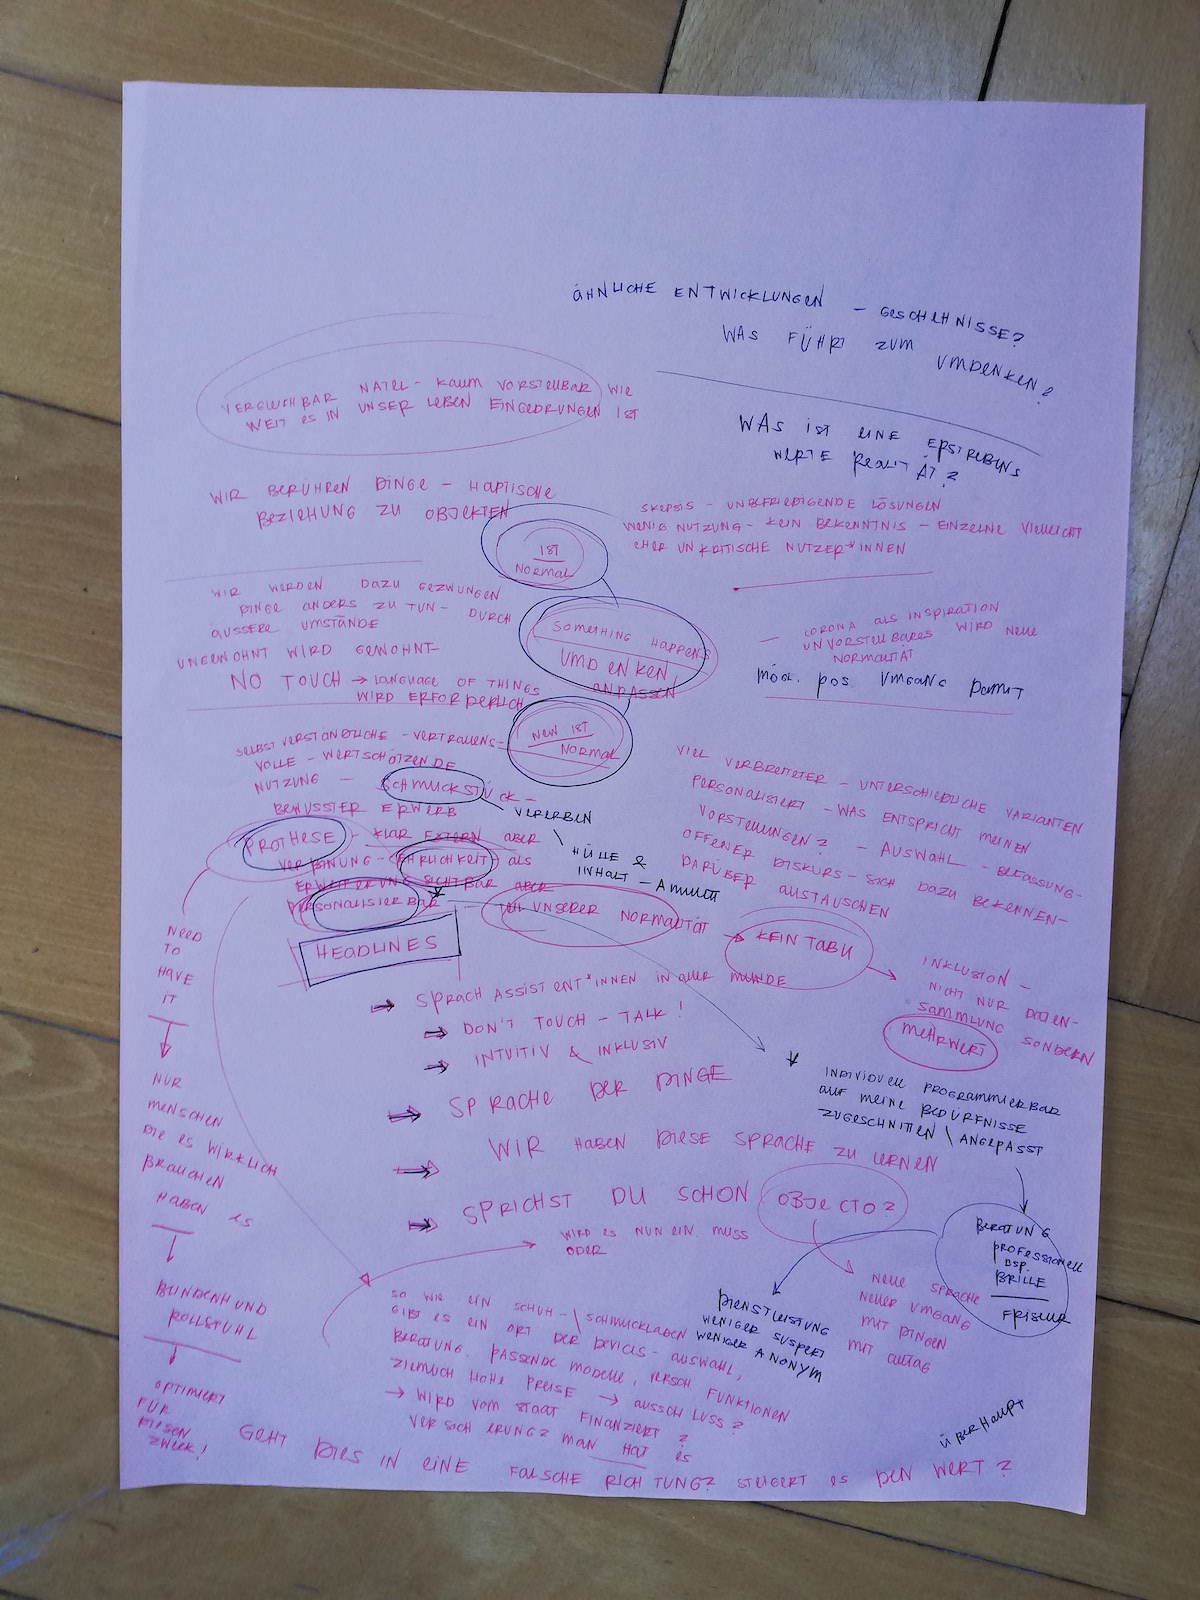 ÄHNLICHE ENTWICKLUNGEN – GESCHEHNISSE?
WAS FÜHRT ZUM UMDENKEN?
VERGLEICHBAR NATEL – KAUM VORSTELLBAR WIE
WEIT ES IN UNSER LEBEN EINGEDRUNGEN IST
WAS IST EINE ERSTREBENS
WERTE REALITÄT?
WIR BERÜHREN DINGE – HAPTISCHE
BEZIEHUNG ZU OBJEKTEN
IST
NORMAL
SKEPSIS – UNBEFRIEDIGENDE LÖSUNGEN
WENIG NUTZUNG – KEIN BEKENNTNIS – EINZELNE VIELLEICHT
EHER UNKRITISCHE NUTZER*INNEN
WIR WERDEN DAZU GEZWUNGEN
DINGE ANDERS ZU TUN – DURCH
ÄUSSERE UMSTÄNDE
UNGEWOHNT WIRD GEWOHNT
NO TOUCH → LANGUAGE OF THINGS
WIRD ERFORDERLICH
SOMETHING HAPPENS
UMDENKEN
ANPASSEN
– CORONA ALS INSPIRATION
UNVORSTELLBARES WIRD NEUE
NORMALITÄT
MÖGL. POS. UMGANG DAMIT
NEW IST
NORMAL
SELBSTVERSTÄNDLICHE – VERTRAUENS–
VOLLE – WERTSCHÄTZENDE
NUTZUNG – SCHMUCKSTÜCK –
BEWUSSTER ERWERB
VERERBEN
HÜLLE &
INHALT – AMULETT
PROTHESE – KLAR EXTERN ABER
VERBINDUNG – EHRLICHKEIT ALS
ERWEITERUNG SICHTBAR ABER
PERSONALISIERBAR * – TEIL UNSERER NORMALITÄT → KEIN TABU
VIEL VERBREITETER – UNTERSCHIEDLICHE VARIANTEN
PERSONALISIERT – WAS ENTSPRICHT MEINEN
VORSTELLUNGEN? – AUSWAHL – BEFASSUNG –
OFFENER DISKURS – SICH DAZU BEKENNEN –
DARÜBER AUSTAUSCHEN
INKLUSION –
NICHT NUR DATEN–
SAMMLUNG SONDERN
MEHRWERT
HEADLINES
⇒ SPRACHASSISTENT*INNEN IN ALLER MUNDE
⇒ DON'T TOUCH – TALK!
⇒ INTUITIV & INKLUSIV
⇒ SPRACHE DER DINGE
⇒ WIR HABEN DIESE SPRACHE ZU LERNEN
⇒ SPRICHST DU SCHON OBJECTO?
* INDIVIDUELL PROGRAMMIERBAR
AUF MEINE BEDÜRFNISSE
ZUGESCHNITTEN \ ANGEPASST
BERATUNG
PROFESSIONELL
BSP.
BRILLE
FRISEUR
DIENSTLEISTUNG
WENIGER SUSPEKT
WENIGER ANONYM
NEUE SPRACHE
NEUER UMGANG
MIT DINGEN
MIT ALLTAG
NEED
TO
HAVE
IT
NUR
MENSCHEN
DIE ES WIRKLICH
BRAUCHEN
HABEN ES
BLINDENHUND
ROLLSTUHL
OPTIMIERT
FÜR
DIESEN
ZWECK!
WIRD ES NUN EIN MUSS
ODER
SO WIE EIN SCHUH – \ SCHMUCKLADEN
GIBT ES EIN ORT DER DEVICES – AUSWAHL,
BERATUNG, PASSENDE MODELLE, VERSCH FUNKTIONEN
ZIEMLICH HOHE PREISE → AUSSCHLUSS?
→ WIRD VOM STAAT FINANZIERT?
VERSICHERUNG? MAN HAT ES
ÜBERHAUPT
GEHT DIES IN EINE FALSCHE RICHTUNG? STEIGERT ES DEN WERT?